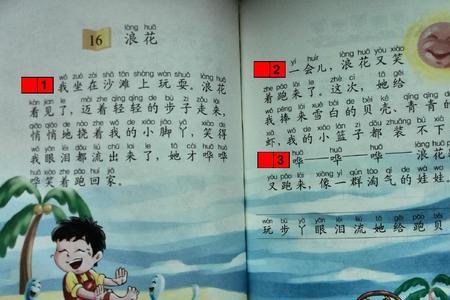 làng huā
16 浪花
wǒ zuò zài shā tān shàng wán shuǎ làng huā
1 我坐在沙滩上玩耍。浪花
kàn jiàn le mài zhe qīng qīng de bù zi zǒu lái
看见了，迈着轻轻的步子走来，
qiāo qiāo de náo zhe wǒ de xiǎo jiǎo yā xiào de
悄悄地挠着我的小脚丫，笑得
wǒ yǎn lèi dōu liú chū lái le tā cái huā
我眼泪都流出来了，她才哗
huā xiào zhe pǎo huí jiā
哗笑着跑回家。
yí huìr làng huā yòu xiào
2 一会儿，浪花又笑
zhe pǎo lái le zhè cì tā gěi
着跑来了。这次，她给
wǒ pěng lái xuě bái de bèi ké qīng qīng de
我捧来雪白的贝壳、青青的
xiā wǒ de xiǎo lán zi dōu zhuāng bú xià
虾，我的小篮子都装不下
huā huā huā làng huā
3 哗——哗——哗——浪花
yòu pǎo lái xiàng yì qún táo qì de wá wa
又跑来，像一群淘气的娃娃。
wán bù yā yǎn lèi liú tā gěi pǎo bèi
玩步丫眼泪流她给跑贝